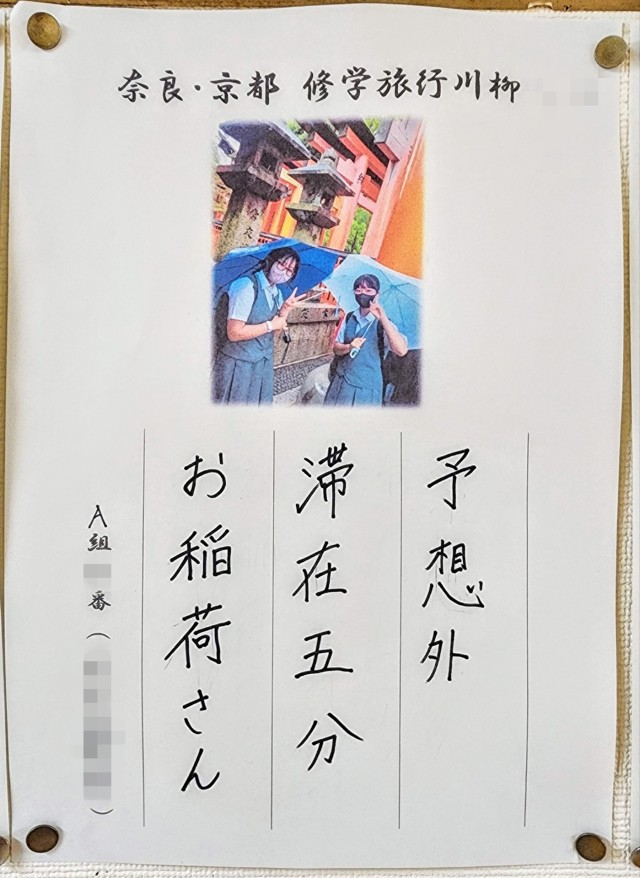 奈良・京都 修学旅行川柳
予想外
滞在五分
お稲荷さん
A組 番 ( )